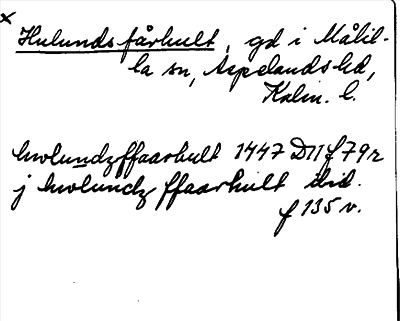 x
Hulunds fårhult, gd i Målil-
la sn, Aspelands hd,
Kalm. l.
hwlundzffaarhult 1447 D11 f 79r
j hwlundz ffaarhult ibid.
f 135 v.